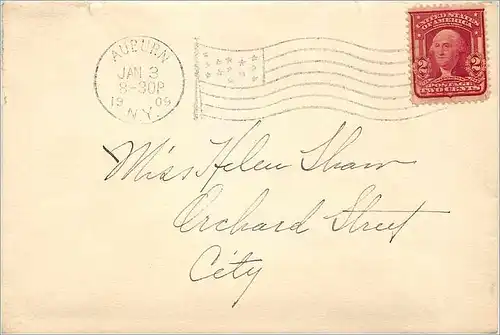 AUBURN
JAN 3
8-30P
1909
N.Y.
UNITED STATES
OF AMERICA
2 2
POSTAGE
TWO CENTS
Miss Helen Shaw
Orchard Street
City